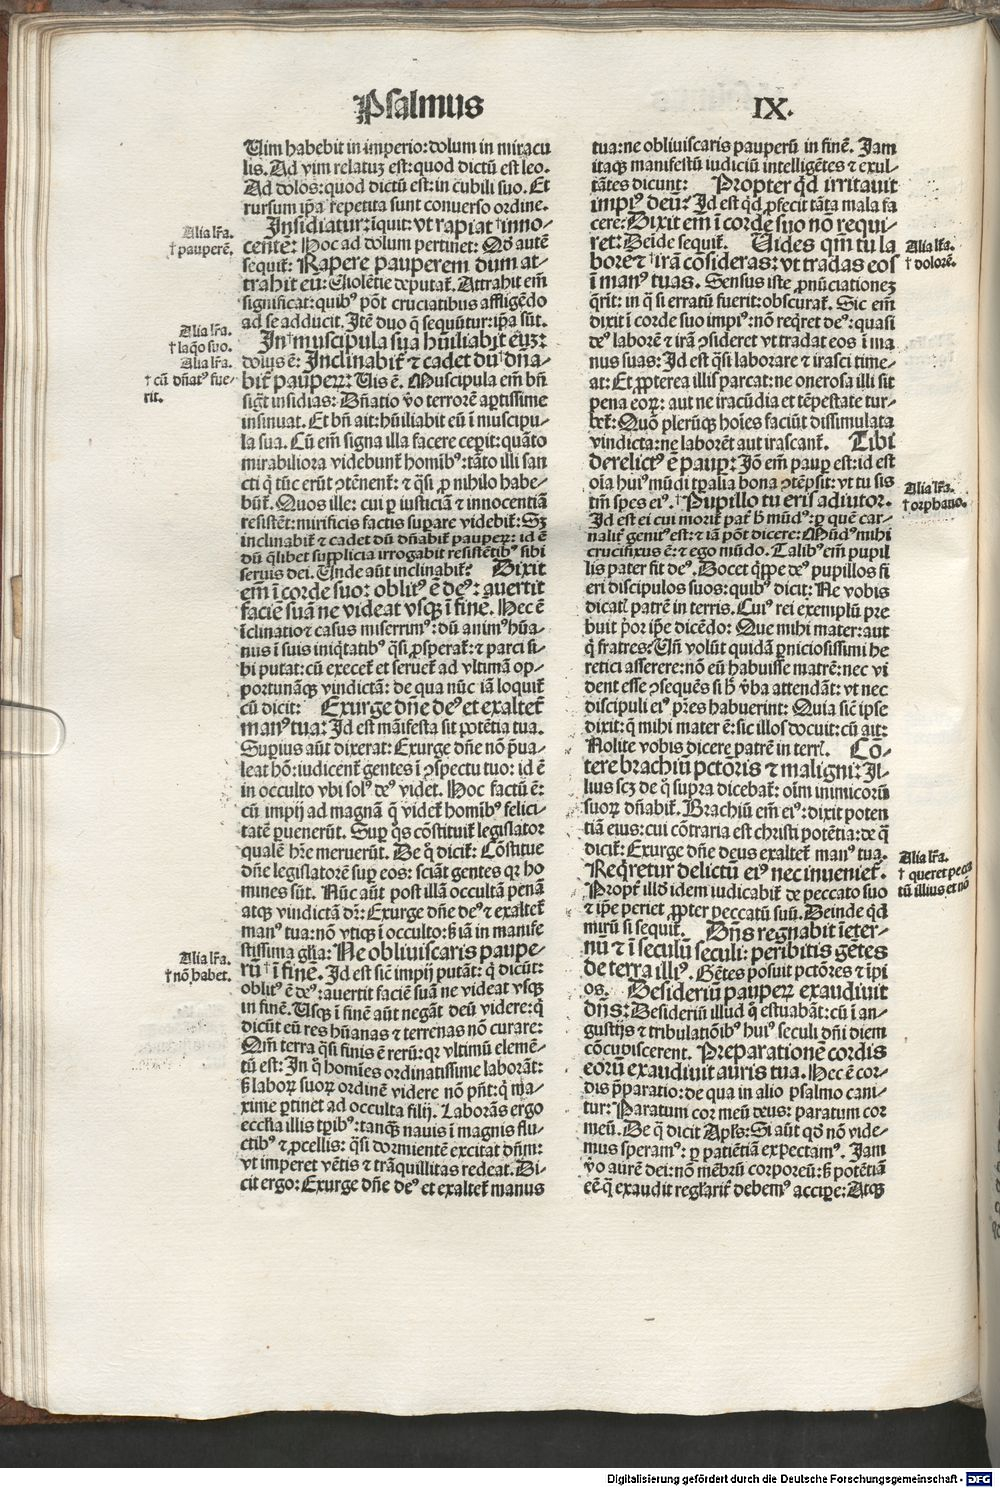 Psalmus IX.
Uim habebit in imperio: dolum in miracu
lis. Ad vim relatuȝ est: quod dictũ est leo.
Ad dolos: quod dictũ est: in cubili suo. Et
rursum ip̃a repetita sunt conuerso ordine.
Insidiatur: inquit: vt rapiat †inno-
cente: Hoc ad dolum pertinet: Qđ autẽ
sequit᷑: Rapere pauperem dum at-
trahit eũ: Uiolẽtie deputat᷑. Attrahit em̃
significat: quibꝰ põt cruciatibus affligẽdo
ad se adducit. Itẽ duo q̃ sequũtur: ip̃a sũt.
In †muscipula sua hũiliabit euȝ:
dolus ẽ: Inclinabit᷑ ⁊ cadet dũ †dña-
bit᷑ paupeꝝ: Uis ẽ. Muscipula em̃ bñ
sigt̃ insidias: Dñatio ṽo terrorẽ aꝑtissime
insinuat. Et bñ ait: hũiliabit eũ ĩ muscipu-
la sua. Cũ em̃ signa illa facere ceꝑit: quãto
mirabiliora videbunt᷑ homĩbꝰ: tãto illi san
cti q̃ tũc erũt ꝯtẽnent᷑: ⁊ q̃si ꝓ nihilo habe-
bũt᷑. Quos ille: cui ꝑ iusticiã ⁊ innocentiã
resistẽt: mirificis factis suꝑare videbit᷑: Sȝ
inclinabit᷑ ⁊ cadet dũ dñabit᷑ paupeꝝ: id ẽ
dũ q̃libet supplicia irrogabit resistẽtibꝰ sibi
seruis dei. Unde aũt inclinabit᷑? Dixit
em̃ ĩ corde suo: oblitꝰ ẽ deꝰ: auertit
faciẽ suã ne videat vsqȝ ĩ fine. Hec ẽ
ĩclinatio ⁊ casus miserrimꝰ: dũ animꝰ hũa-
nus ĩ suis iniq̃tatibꝰ q̃si ꝓsperat᷑: ⁊ parci si-
bi putat: cũ execet᷑ et seruet᷑ ad vltimã op-
portunãqȝ vindictã: de qua nũc iã loquit᷑
cũ dicit: Exurge dñe deꝰ et exaltet᷑
manꝰ tua: Id est mãifesta sit potẽtia tua.
Suꝑius aũt dixerat: Exurge dñe nõ p̃ua-
leat hõ: iudicent᷑ gentes ĩ ꝯspectu tuo: id ẽ
in occulto vbi solꝰ deꝰ videt. Hoc factũ ẽ:
cũ impij ad magnã q̃ videt᷑ homĩbꝰ felici-
tatẽ ꝑuenerũt. Suꝑ q̃s cõstituit᷑ legislator
qualẽ hr̃e meruerũt. De q̃ dicit᷑: Cõstitue
dñe legislatorẽ suꝑ eos: sciãt gentes qꝛ ho
mines sũt. Nũc aũt post illã occultã penã
atqȝ vindictã dr̃: Exurge dñe deꝰ ⁊ exaltet᷑
manꝰ tua: nõ vtiqȝ ĩ occulto: sȝ iã in manife
stissima gl̃ia: Ne obliuiscaris paupe-
rũ †ĩ fine. Id est siẽ impij putãt: q̃ dicũt:
oblitꝰ ẽ deꝰ: auertit faciẽ suã ne videat vsqȝ
in finẽ. Usqȝ ĩ finẽ aũt negãt deũ videre: q̃
dicũt eũ res hũanas ⁊ terrenas nõ curare:
Qm̃ terra q̃si finis ẽ rerũ: qꝛ vltimũ elemẽ-
tũ est: In q̃ homĩes ordinatissime laborãt:
sȝ laboꝝ suoꝝ ordinẽ videre nõ pñt: q̃ ma-
xime ꝑtinet ad occulta filij. Laborãs ergo
eccl̃ia illis tꝑibꝰ: tanqȝ nauis ĩ magnis flu-
ctibꝰ ⁊ ꝓcellis: q̃si dormientẽ excitat dñm:
vt imperet vẽtis ⁊ trãquillitas redeat. Di-
cit ergo: Exurge dñe deꝰ et exaltet᷑ manus
tua: ne obliuiscaris pauperũ in finẽ. Jam
itaqȝ manifestũ iudiciũ intelligẽtes ⁊ exul-
tãtes dicunt: Propter q̃d irritauit
impiꝰ deũ? Id est q̃d ꝓfecit tãta mala fa
cere: Dixit em̃ ĩ corde suo nõ requi-
ret: Deide sequit᷑. Uides qm̃ tu la
borẽ ⁊ †irã cõsideras: vt tradas eos
ĩ manꝰ tuas. Sensus iste ꝓnũciationeȝ
q̃rit: in q̃ si erratũ fuerit: obscurat᷑. Sic em̃
dixit ĩ corde suo impiꝰ: nõ req̃ret deꝰ: quasi
deꝰ laborẽ ⁊ irã ꝯsideret vt tradat eos ĩ ma
nus suas: Id est q̃si laborare ⁊ irasci time-
at: Et ꝓpterea illis parcat: ne onerosa illi sit
pena eoꝝ: aut ne iracũdia et tẽpestate tur-
bet᷑: Quõ plerũqȝ hoĩes faciũt dissimulata
vindicta: ne laborẽt aut irascant᷑. Tibi
derelictꝰ ẽ pauꝑ: Iõ em̃ pauꝑ est: id est
oĩa huiꝰ mũdi tꝑalia bona ꝯtẽpsit: vt tu sis
tm̃ spes eiꝰ. †Pupillo tu eris adiutor.
Id est ei cui morit᷑ pat᷑ hˀ mũdꝰ: ꝑ quẽ car-
nalit᷑ genitꝰ est: ⁊ iã põt dicere: Mũdꝰ mihi
crucifixus ẽ: ⁊ ego mũdo. Talibꝰ em̃ pupil
lis pater fit deꝰ. Docet q̃ppe deꝰ pupillos fi
eri discipulos suos: quibꝰ dicit: Ne vobis
dicatis patrẽ in terris. Cuiꝰ rei exemplũ pre
buit p̃or ip̃e dicẽdo: Que mihi mater: aut
q̃ fratres: Uñ volũt quidã ꝑniciosissimi he
retici asserere: nõ eũ habuisse matrẽ: nec vi
dent esse ꝯsequẽs si hˀ ṽba attendãt: vt nec
discipuli eiꝰ p̃res habuerint: Quia siẽ ipse
dixit: q̃ mihi mater ẽ: sic illos docuit: cũ ait:
Nolite vobis dicere patrẽ in terris. Cõ-
tere brachiũ pctõris ⁊ maligni: Il-
lius scȝ de q̃ supra dicebat᷑: oĩm inimicorũ
suoꝝ dñabit᷑. Brachiũ em̃ eiꝰ: dixit poten
tiã eius: cui cõtraria est christi potẽtia: de q̃
dicit᷑: Exurge dñe deus exaltet᷑ manꝰ tua.
†Req̃retur delictũ eiꝰ nec inueniet᷑.
Propt᷑ illđ idem iudicabit᷑ de peccato suo
⁊ ip̃e periet ꝓpter peccatũ suũ. Deinde q̃d
mirũ si sequit᷑. Dñs regnabit ĩeter-
nũ ⁊ ĩ seculũ seculi: peribitis gẽtes
de terra illiꝰ. Gẽtes posuit pctõres ⁊ ĩpi
os. Desideriũ paupeꝝ exaudiuit
dñs: Desideriũ illud q̃ estuabãt: cũ ĩ an-
gustijs ⁊ tribulatiõibꝰ huiꝰ seculi dñi diem
cõcupiscerent. Preparationẽ cordis
eorũ exaudiuit auris tua. Hec ẽ cor-
dis p̃ꝑaratio: de qua in alio psalmo cani-
tur: Paratum cor meũ deus: paratum cor
meũ. De q̃ dicit Apls̃: Si aũt qđ nõ vide-
mus speramꝰ: ꝑ patiẽtiã expectamꝰ. Jam
ṽo aurẽ dei: nõ mẽbrũ corporeũ: sȝ potẽtiã
eẽ q̃ exaudit regularit᷑ debemꝰ acciꝑe: Atqȝ
Alia lr̃a.
† pauperẽ.
Alia lr̃a.
† laq̃o suo.
Alia lr̃a.
† cũ dñatꝰ fue-
rit.
Alia lr̃a.
† nõ habet.
Alia lr̃a.
† dolorẽ.
Alia lr̃a.
† orphano.
Alia lr̃a.
† queret pecca
tũ illius et nõ
Digitalisierung gefördert durch die Deutsche Forschungsgemeinschaft - DFG